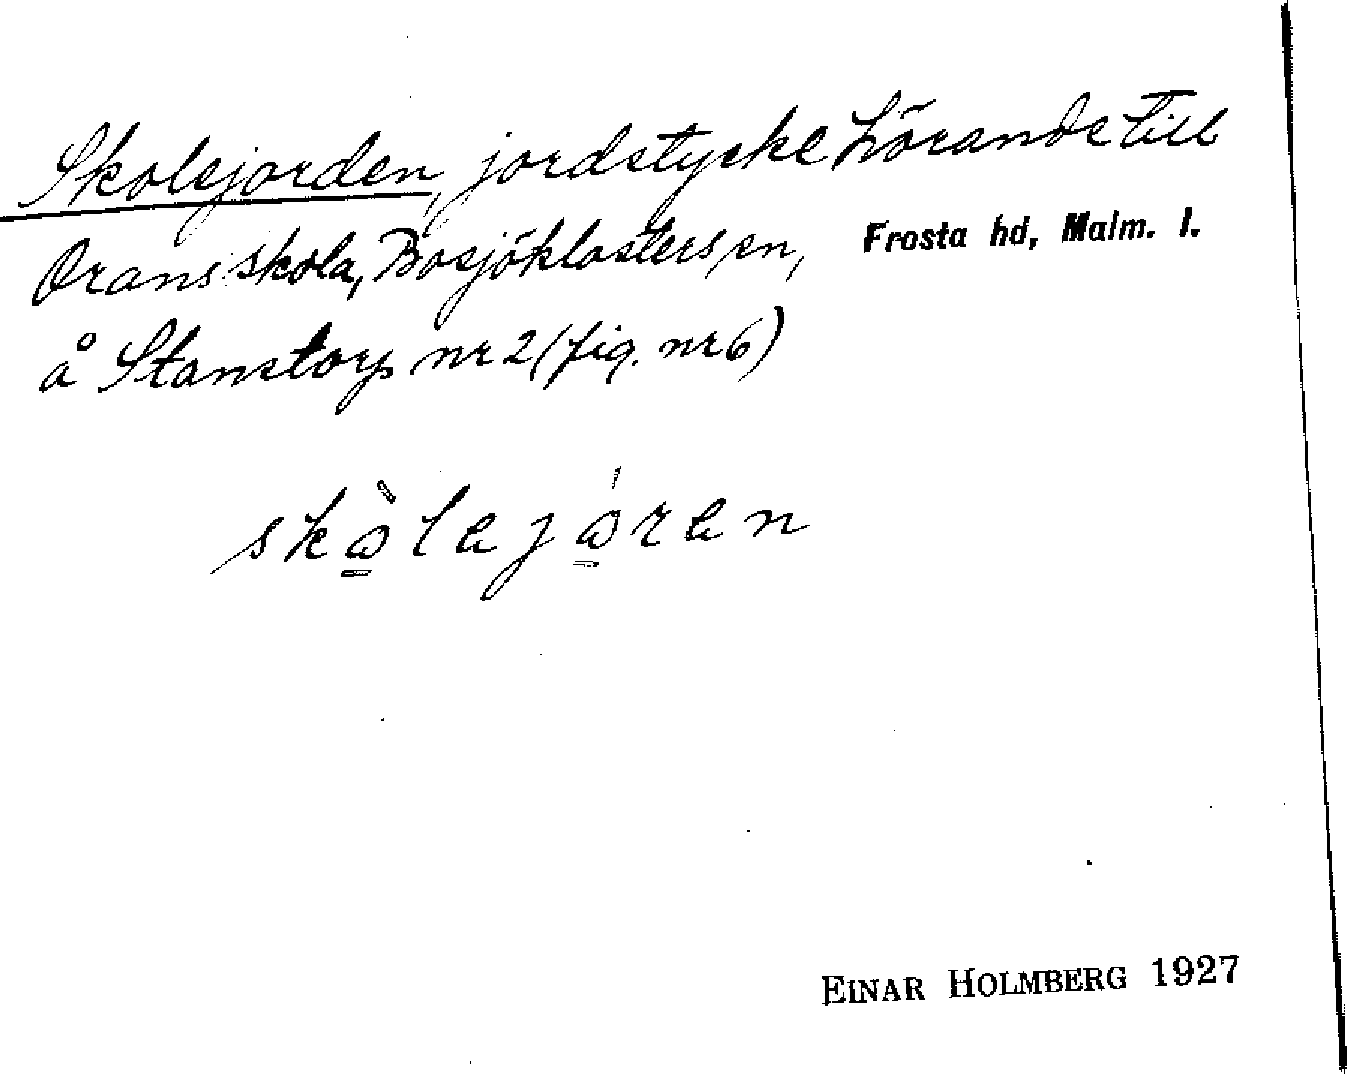 Skolejorden, jordstycke hörande till
Orans skola, Bosjöklosters sn, Frosta hd, Malm. l.
å Stanstorp nr 2 (fig. nr 6)
skòlejóren
EINAR HOLMBERG 1927